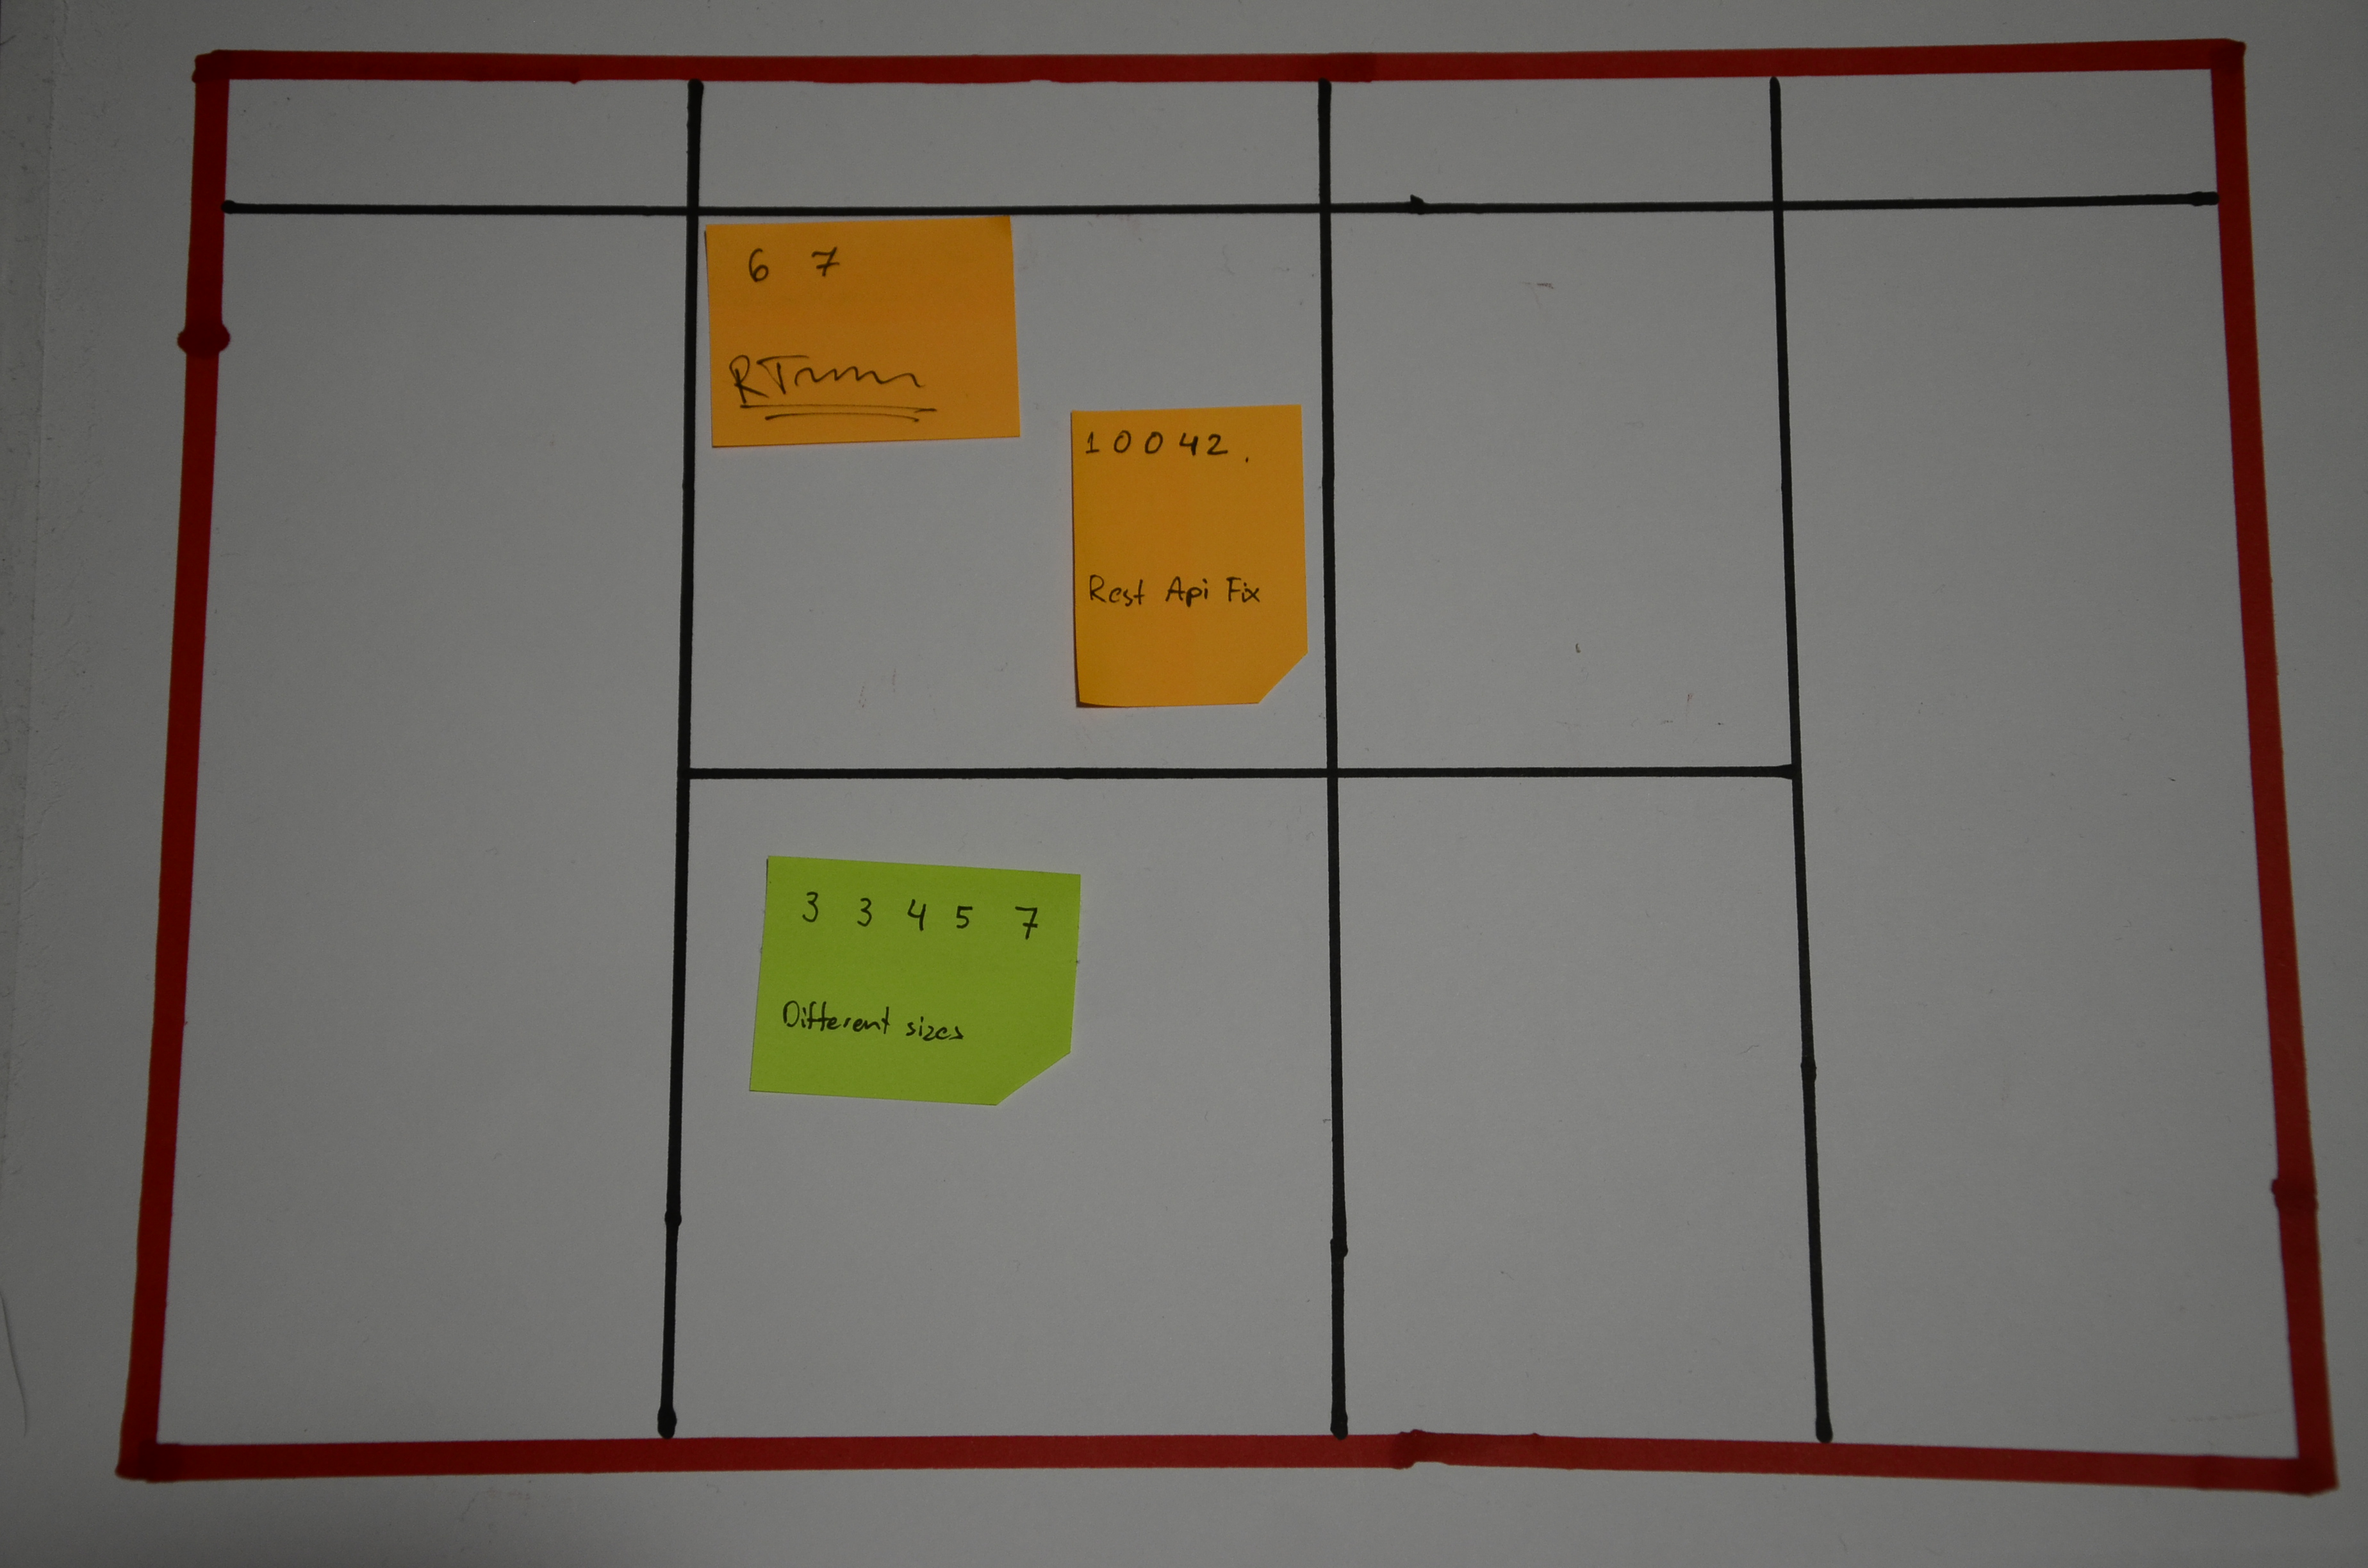 6 7
10042.
Rest Api Fix
3 3 4 5 7
Different sizes